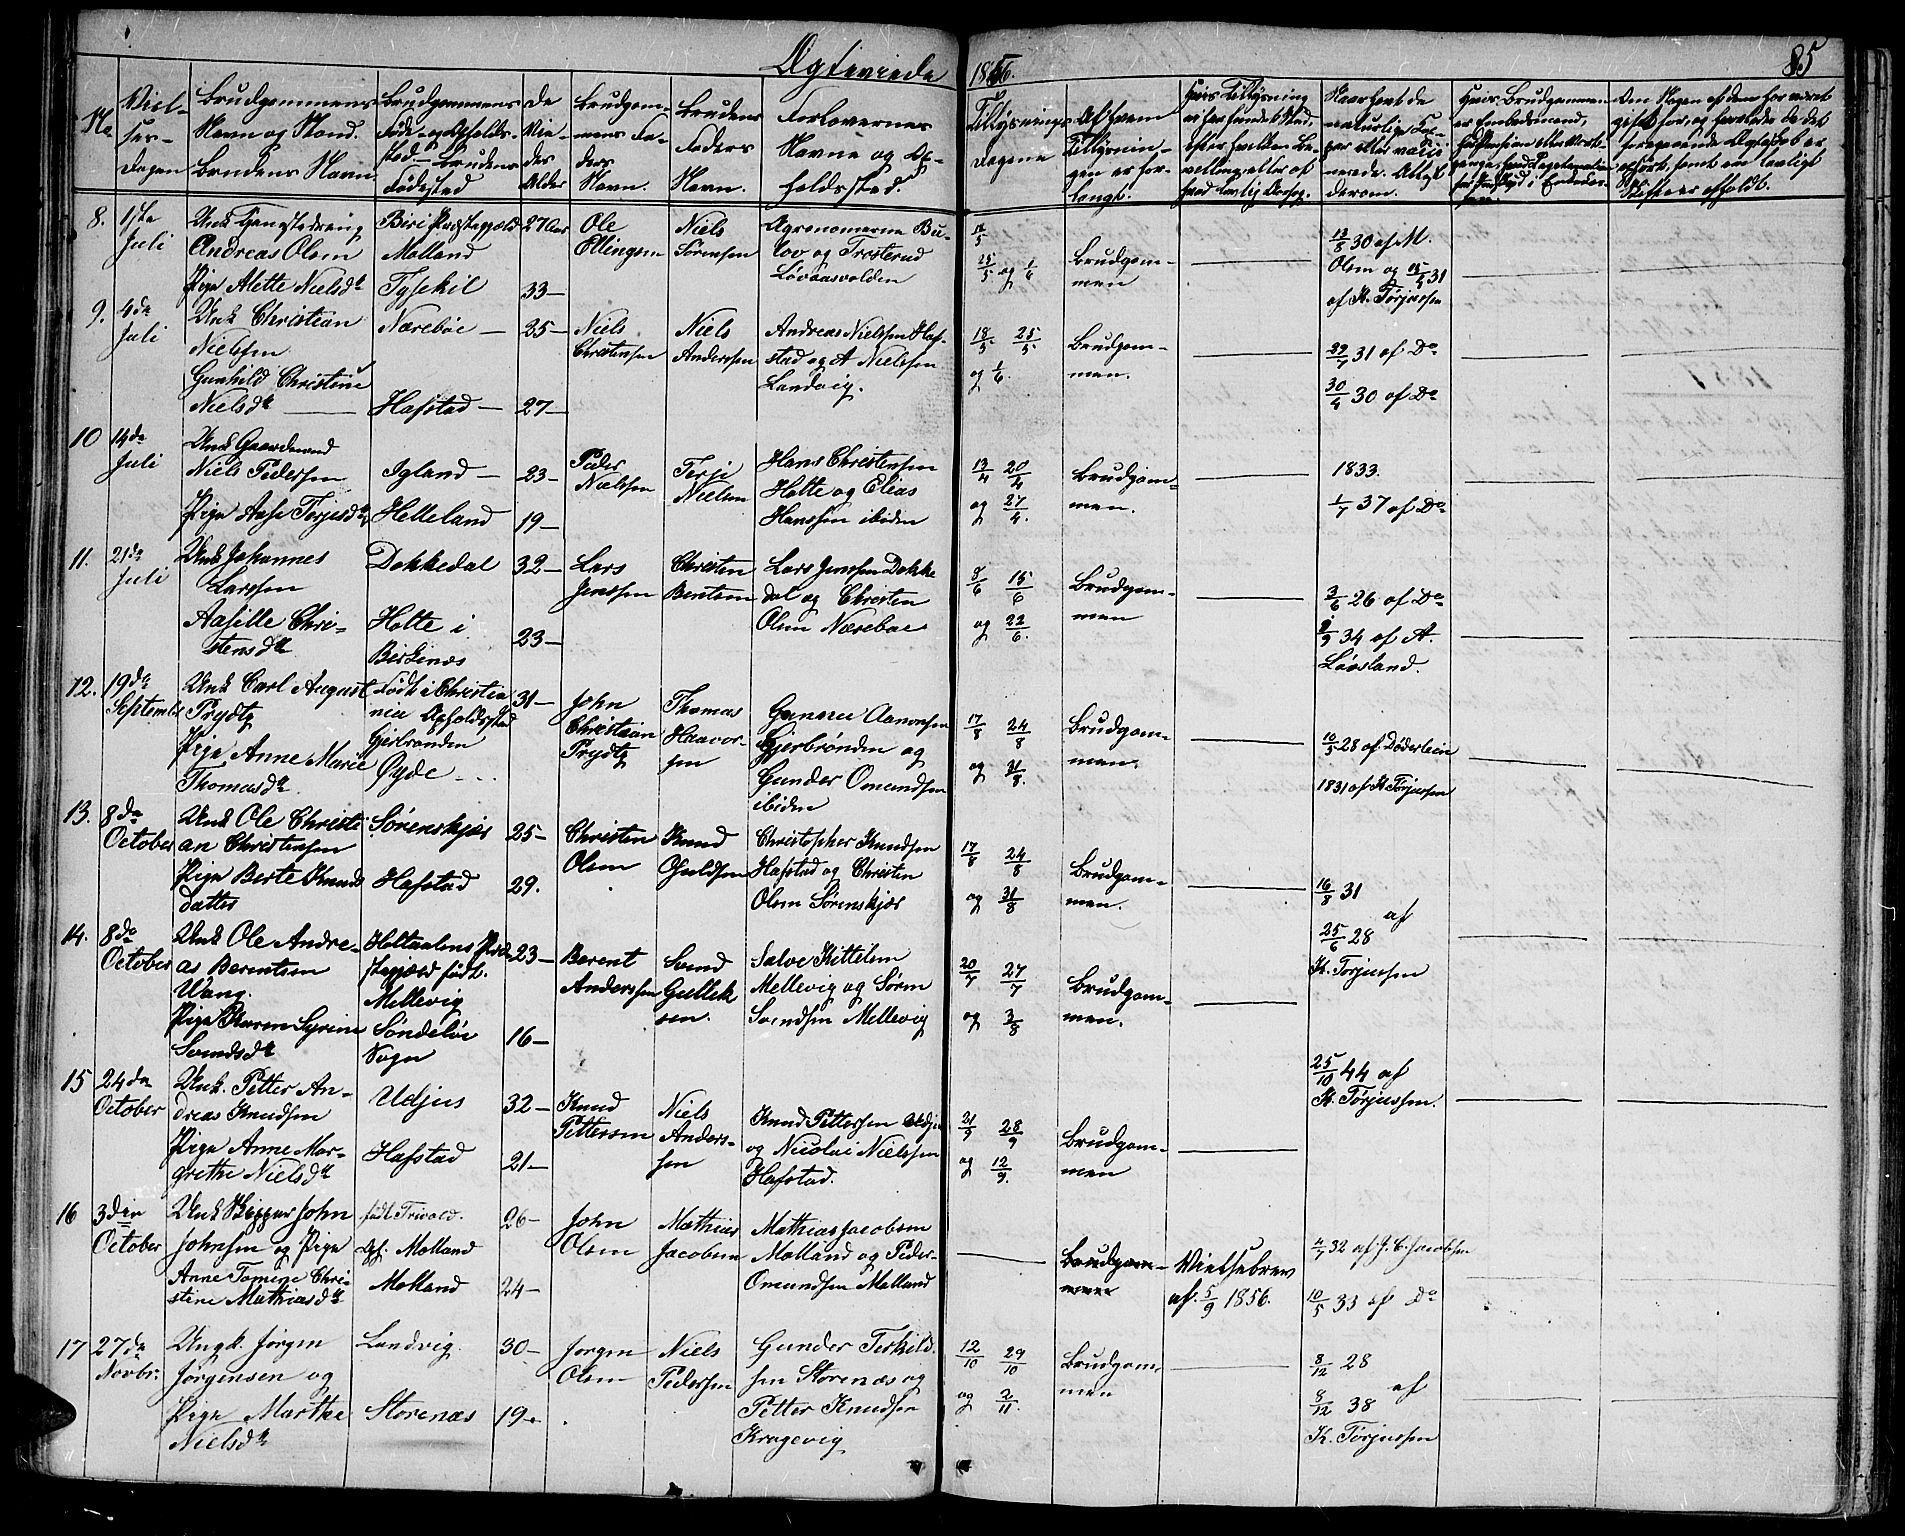 Ægteviede 1856. 85
No
Viel-
ses-
Dagen
Brudgommens
Navn og Stand.
Brudens Navn
Brudgommens
Føde- og Opholds-
sted. Brudens
Fødested
De
Vie-
des
Alder
Brudgom-
mens Fa-
ders
Navn.
Brudens
Faders
Navn.
Forlovernes
Navne og Op-
holdssted.
Tillysnings
Dagene
Af hvem
Tillysnin-
gen er for-
langt.
Hvis Tillysning
Naar havt de
naturlige Kop-
per eller vacci-
nerede. Attest
derom.
Hvis Brudgommen
er Embedsmand,
Om Nogen af dem har været
gift før, og hvorledes da det
foregaaende Ægteskab er
ophørt, samt om lovligt
Skifte er afholdt.
8. 1ste
Juli
Unk Tjenestedreng
Andreas Olsen
Pige Alette Nielsdt
Biri Præstegjæld
Molland
Tysekil
27 Aar
33—
Ole
Ellingsen
Niels
Sørensen
Agronomerne Bu-
lov og Trosterud
Løvaasvolden
18/5
25/5 og 1/6
Brudgom-
men
13/8 30 af M.
Olsen og 31
af K. Tørjussen
9. 4de
Juli
Unk Christian
Nielsen
Gunhild Christine
Nielsdt
Nærebøe —
Hafstad —
25—
27—
Niels
Christensen
Niels
Anderssen
Andreas Nielsen Haf-
stad og A Nielssen
Landvig.
18/5 25/5
og 1/6.
Brudgom-
men.
29/7 31 af Do
30/4 30 af Do
10 14de
Juli
Unk Gaardmand
Niels Pedersen
Pige Aase Terjesdt
Igland —
Helleland
23—
19—
Peder
Nielssen
Terje
Nielsen
Hans Christensen
Holte og Elias
Hanssen ibiden
13/4 20/4
og 27/4.
Brudgom-
men.
1833.
1/7 37 af Do
11. 21de
Juli
Unk Johannes
Larssen
Aasille Chri-
stensdt
Dokkedal
Holte i
Birkenæs
32—
23—
Lars
Jenssen
Christen
Bentsen
Lars Jenssen Dokke
dal og Christen
Olsen Nærebøe
8/6 15/6
og 22/6.
Brudgom-
men
3/6 26 af Do
8/9 34 af A.
Løvsland.
12. 19de
Septembr
Unk Carl August
Prydtz
Pige Anne Marie
Thomasdt
Født i Christia
nia Opholdssted
Gjerbrønden
Øyde
31—
John
Christian
Prydtz
Thomas
Haavor-
sen
Gunner Aanonsen
Gjerbrønden og
Gunder Omundsen
ibiden
17/8 24/8
og 31/8.
Brudgom-
men.
10/5 28 af Døderlein
1831 af K. Tørjussen
13. 8de
October
Unk Ole Christi
an Christensen
Pige Berte Knuds
datter
Sørenskjær
Hafstad
25—
29.
Christen
Olsen
Knud
Osuldsen
Christopher Knudsen
Hafstad og Christen
Olsen Sørenskjær
17/8 24/8
og 31/8
Brudgom-
men.
16/8 31
af
25/6 28
K. Tørjussen
14. 8de
October
Unk Ole Andre-
as Berentsen
Wang.
Pige Karen Syrine
Svendsdt
Holtaalens Præ-
stegjæld født.
Mellevig
Søndeløv
Sogn
23—
16—
Berent
Anderssen
Svend
Gullik
sen.
Salve Kittelsen
Mellevig og Søren
Svendsen Mellevig
20/7 27/7
og 3/8
Brudgom-
men.
25/10 44 af
K. Tørjussen.
15 24de
October
Unk. Petter An-
dreas Knudsen
Pige Anne Mar-
grethe Nielsdt
Udjus
Hafstad
32—
21—
Knud
Pettersen
Niels
Anders-
sen
Knud Pettersen Udjus
og Nicolai Nielssen
Hafstad.
21/9 28/9
og 12/9.
Brudgom-
men
16 3die
October
Unk Skipper John
Johnsen og Pige
Anne Tomene Chri-
stine Mathiasdt
født Trivold.
Oph. Molland
Molland
26—
24—
John
Olsen
Mathias
Jacobsen
Mathias Jacobsen
Molland og Peder
Omundsen Molland
Brudgom-
men
Vielsebrev
af 5/9 1856.
4/7 32 af J. C. Jacobsen
10/5 33 af Do
17 27de
Novbr.
Ungk. Jørgen
Jørgensen og
Pige Marthe
Nielsdt
Landvig.
Storenæs
30—
19—
Jørgen
Olsen
Niels
Pedersen
Gunder Terkild-
sen Storenæs og
Petter Knudsen
Kragevig
12/10 29/10
og 2/11.
Brudgom-
men
8/12 28
af
8/12 38
K. Tørjussen